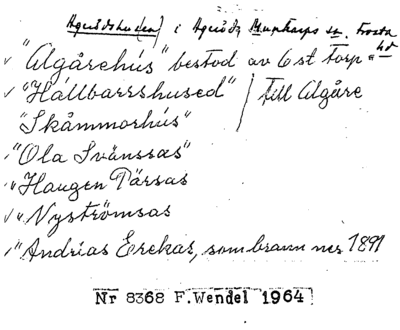 i Munkarps sn. Frosta hd
"Algårehús" bestod av 6 st torp
"Hållbarrshused" / till Algåre
"Skåmmorhús"
"Ola Svänssas"
"Haugen Pärsas
" Nyströmsas
"Andrias Erekas, som brann ner 1891
Nr 8368 F.Wendel 1964